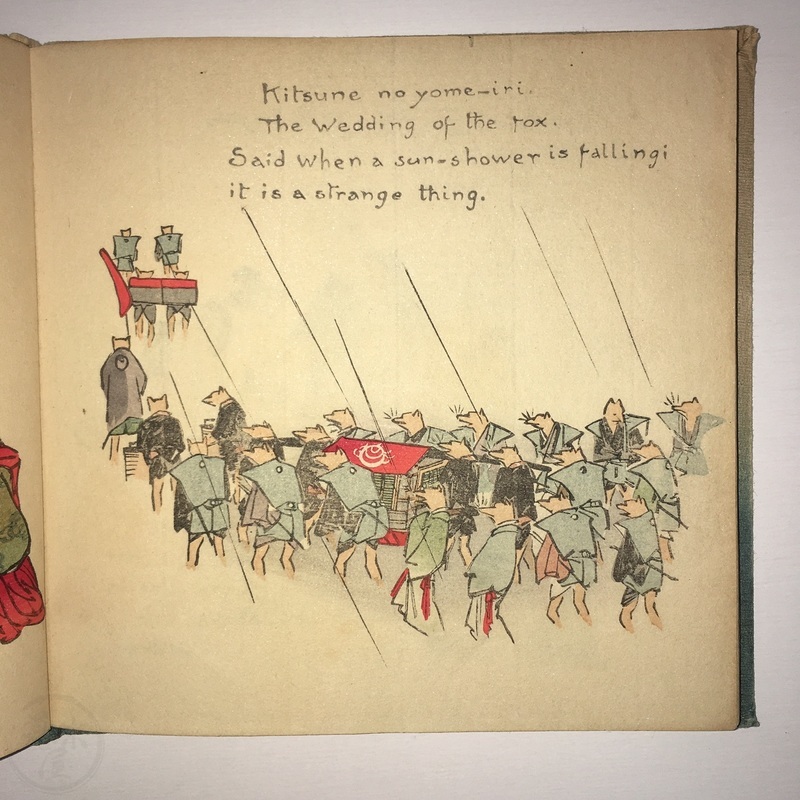 Kitsune no yome-iri.
The Wedding of the fox.
Said when a sun-shower is falling;
it is a strange thing.